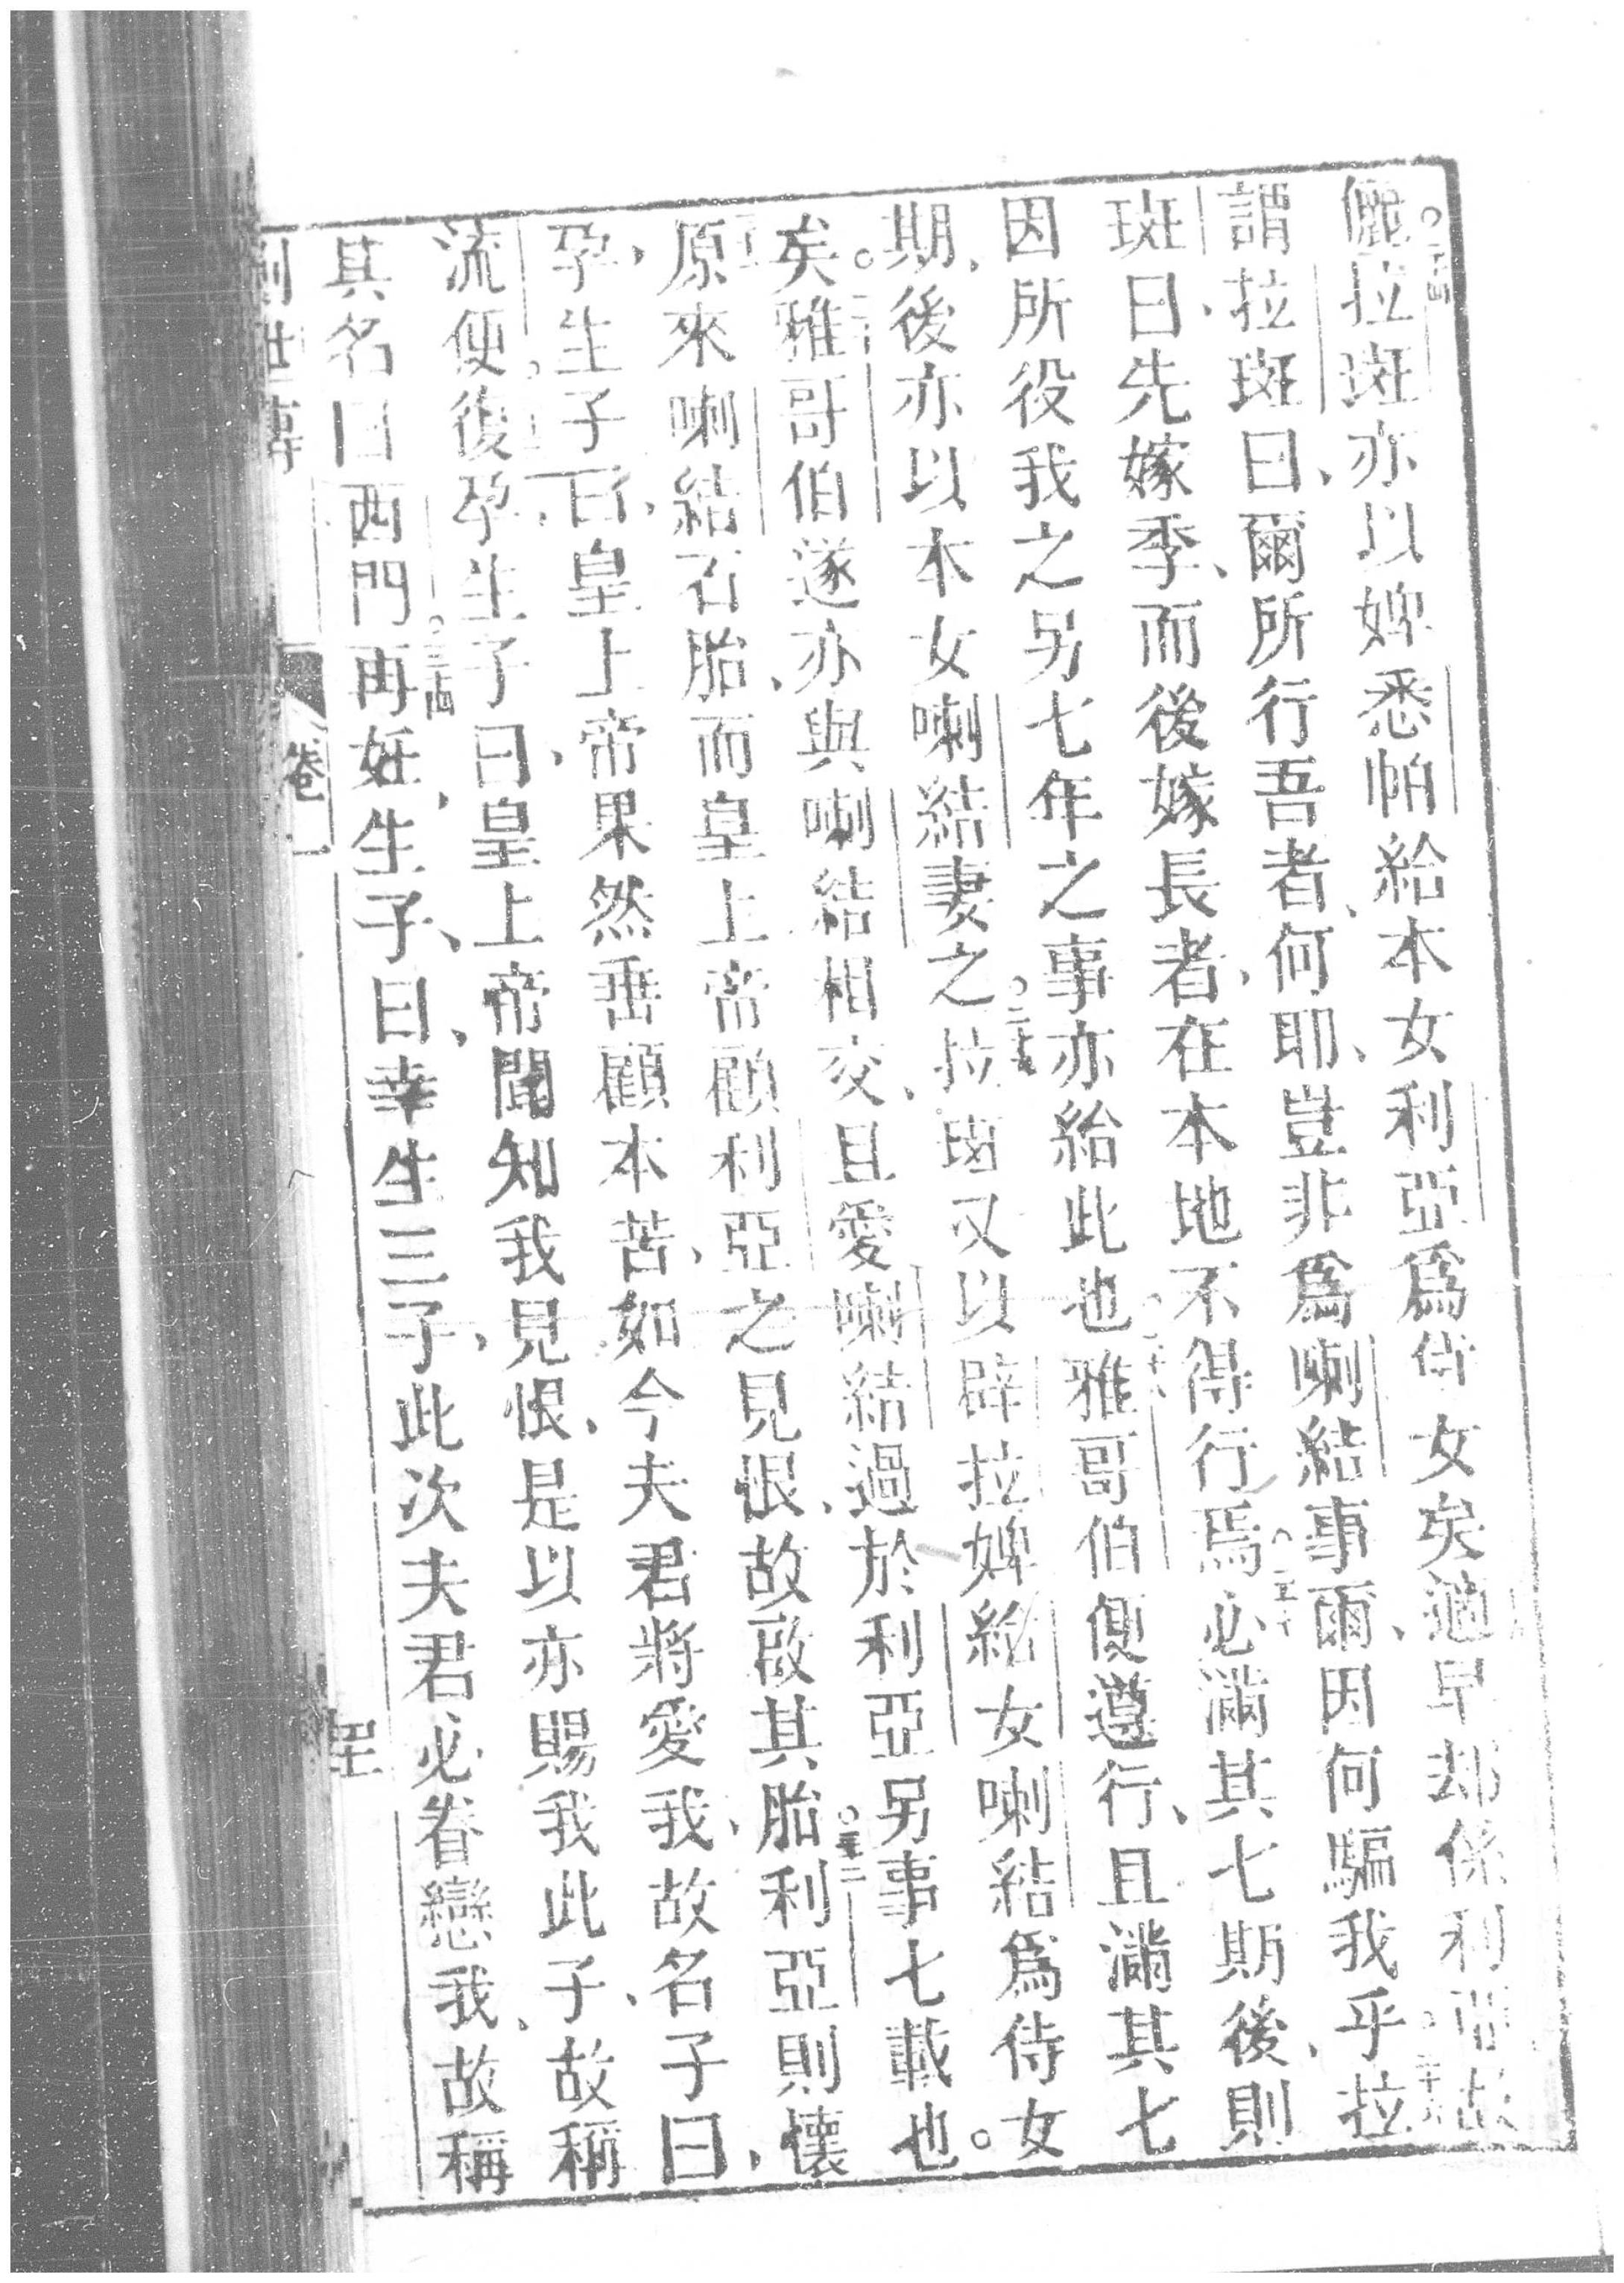 儷拉斑亦以婢悉帕給本女利亞爲侍女矣適早却係利亞故
謂拉斑曰、爾所行吾者、何耶、豈非爲喇結事爾、因何騙我乎拉
斑曰、先嫁季、而後嫁長者、在本地不得行焉必滿其七期後、則
因所役我之另七年之事亦給此也雅哥伯便遵行、且滿其七
期、後亦以本女喇結妻之拉斑又以辟拉婢給女喇結爲侍女
矣。雅哥伯遂亦與喇結相交、且愛喇結過於利亞另事七載也。
原來喇結石胎、而皇上帝顧利亞之見恨、故啟其胎利亞則懷
孕、生子曰、皇上帝果然垂顧本苦、如今夫君將愛我、故名子曰、
流便復孕、生子曰、皇上帝聞知我見恨、是以亦賜我此子、故稱
其名曰西門再妊、生子、曰、幸生三子、此次夫君必眷戀我、故稱
創世傳 卷一